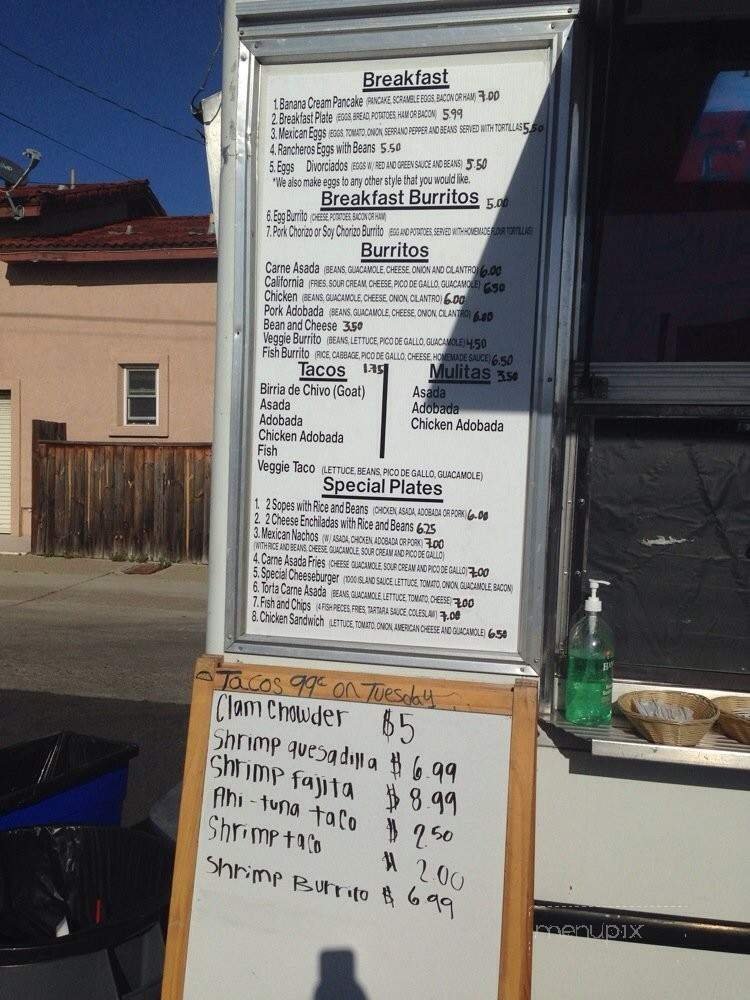 Breakfast
1. Banana Cream Pancake (PANCAKE, SCRAMBLE EGGS, BACON OR HAM) 7.00
2. Breakfast Plate (EGGS, BREAD, POTATOES, HAM OR BACON) 5.99
3. Mexican Eggs (EGGS, TOMATO, ONION, SERRANO PEPPER AND BEANS SERVED WITH TORTILLAS) 5.50
4. Rancheros Eggs with Beans 5.50
5. Eggs Divorciados (EGGS W/ RED AND GREEN SAUCE AND BEANS) 5.50
*We also make eggs to any other style that you would like.
Breakfast Burritos 5.00
6. Egg Burrito (CHEESE, POTATOES, BACON OR HAM)
7. Pork Chorizo or Soy Chorizo Burrito (EGG AND POTATOES, SERVED WITH HOMEMADE FLOUR TORTILLAS)
Burritos
Carne Asada (BEANS, GUACAMOLE, CHEESE, ONION AND CILANTRO) 6.00
California (FRIES, SOUR CREAM, CHEESE, PICO DE GALLO, GUACAMOLE) 6.50
Chicken (BEANS, GUACAMOLE, CHEESE, ONION, CILANTRO) 6.00
Pork Adobada (BEANS, GUACAMOLE, CHEESE, ONION, CILANTRO) 6.00
Bean and Cheese 3.50
Veggie Burrito (BEANS, LETTUCE, PICO DE GALLO, GUACAMOLE) 4.50
Fish Burrito (RICE, CABBAGE, PICO DE GALLO, CHEESE, HOMEMADE SAUCE) 6.50
Tacos 1.75
Birria de Chivo (Goat)
Asada
Adobada
Chicken Adobada
Fish
Veggie Taco (LETTUCE, BEANS, PICO DE GALLO, GUACAMOLE)
Mulitas 3.50
Asada
Adobada
Chicken Adobada
Special Plates
1. 2 Sopes with Rice and Beans (CHICKEN, ASADA, ADOBADA OR PORK) 6.00
2. 2 Cheese Enchiladas with Rice and Beans 6.25
3. Mexican Nachos (W/ ASADA, CHICKEN, ADOBADA OR PORK) 7.00
(WITH RICE AND BEANS, CHEESE, GUACAMOLE, SOUR CREAM AND PICO DE GALLO)
4. Carne Asada Fries (CHEESE GUACAMOLE, SOUR CREAM AND PICO DE GALLO) 7.00
5. Special Cheeseburger (1000 ISLAND SAUCE, LETTUCE, TOMATO, ONION, GUACAMOLE, BACON)
6. Torta Carne Asada (BEANS, GUACAMOLE, LETTUCE, TOMATO, CHEESE) 7.00
7. Fish and Chips (4 FISH PIECES, FRIES, TARTARA SAUCE, COLESLAW) 7.00
8. Chicken Sandwich (LETTUCE, TOMATO, ONION, AMERICAN CHEESE AND GUACAMOLE) 6.50
Tacos 99¢ on Tuesday
Clam Chowder $5
Shrimp quesadilla $6.99
Shrimp fajita $8.99
Ahi-tuna taco $2.50
Shrimp taco $2.00
Shrimp Burrito $6.99
menupix